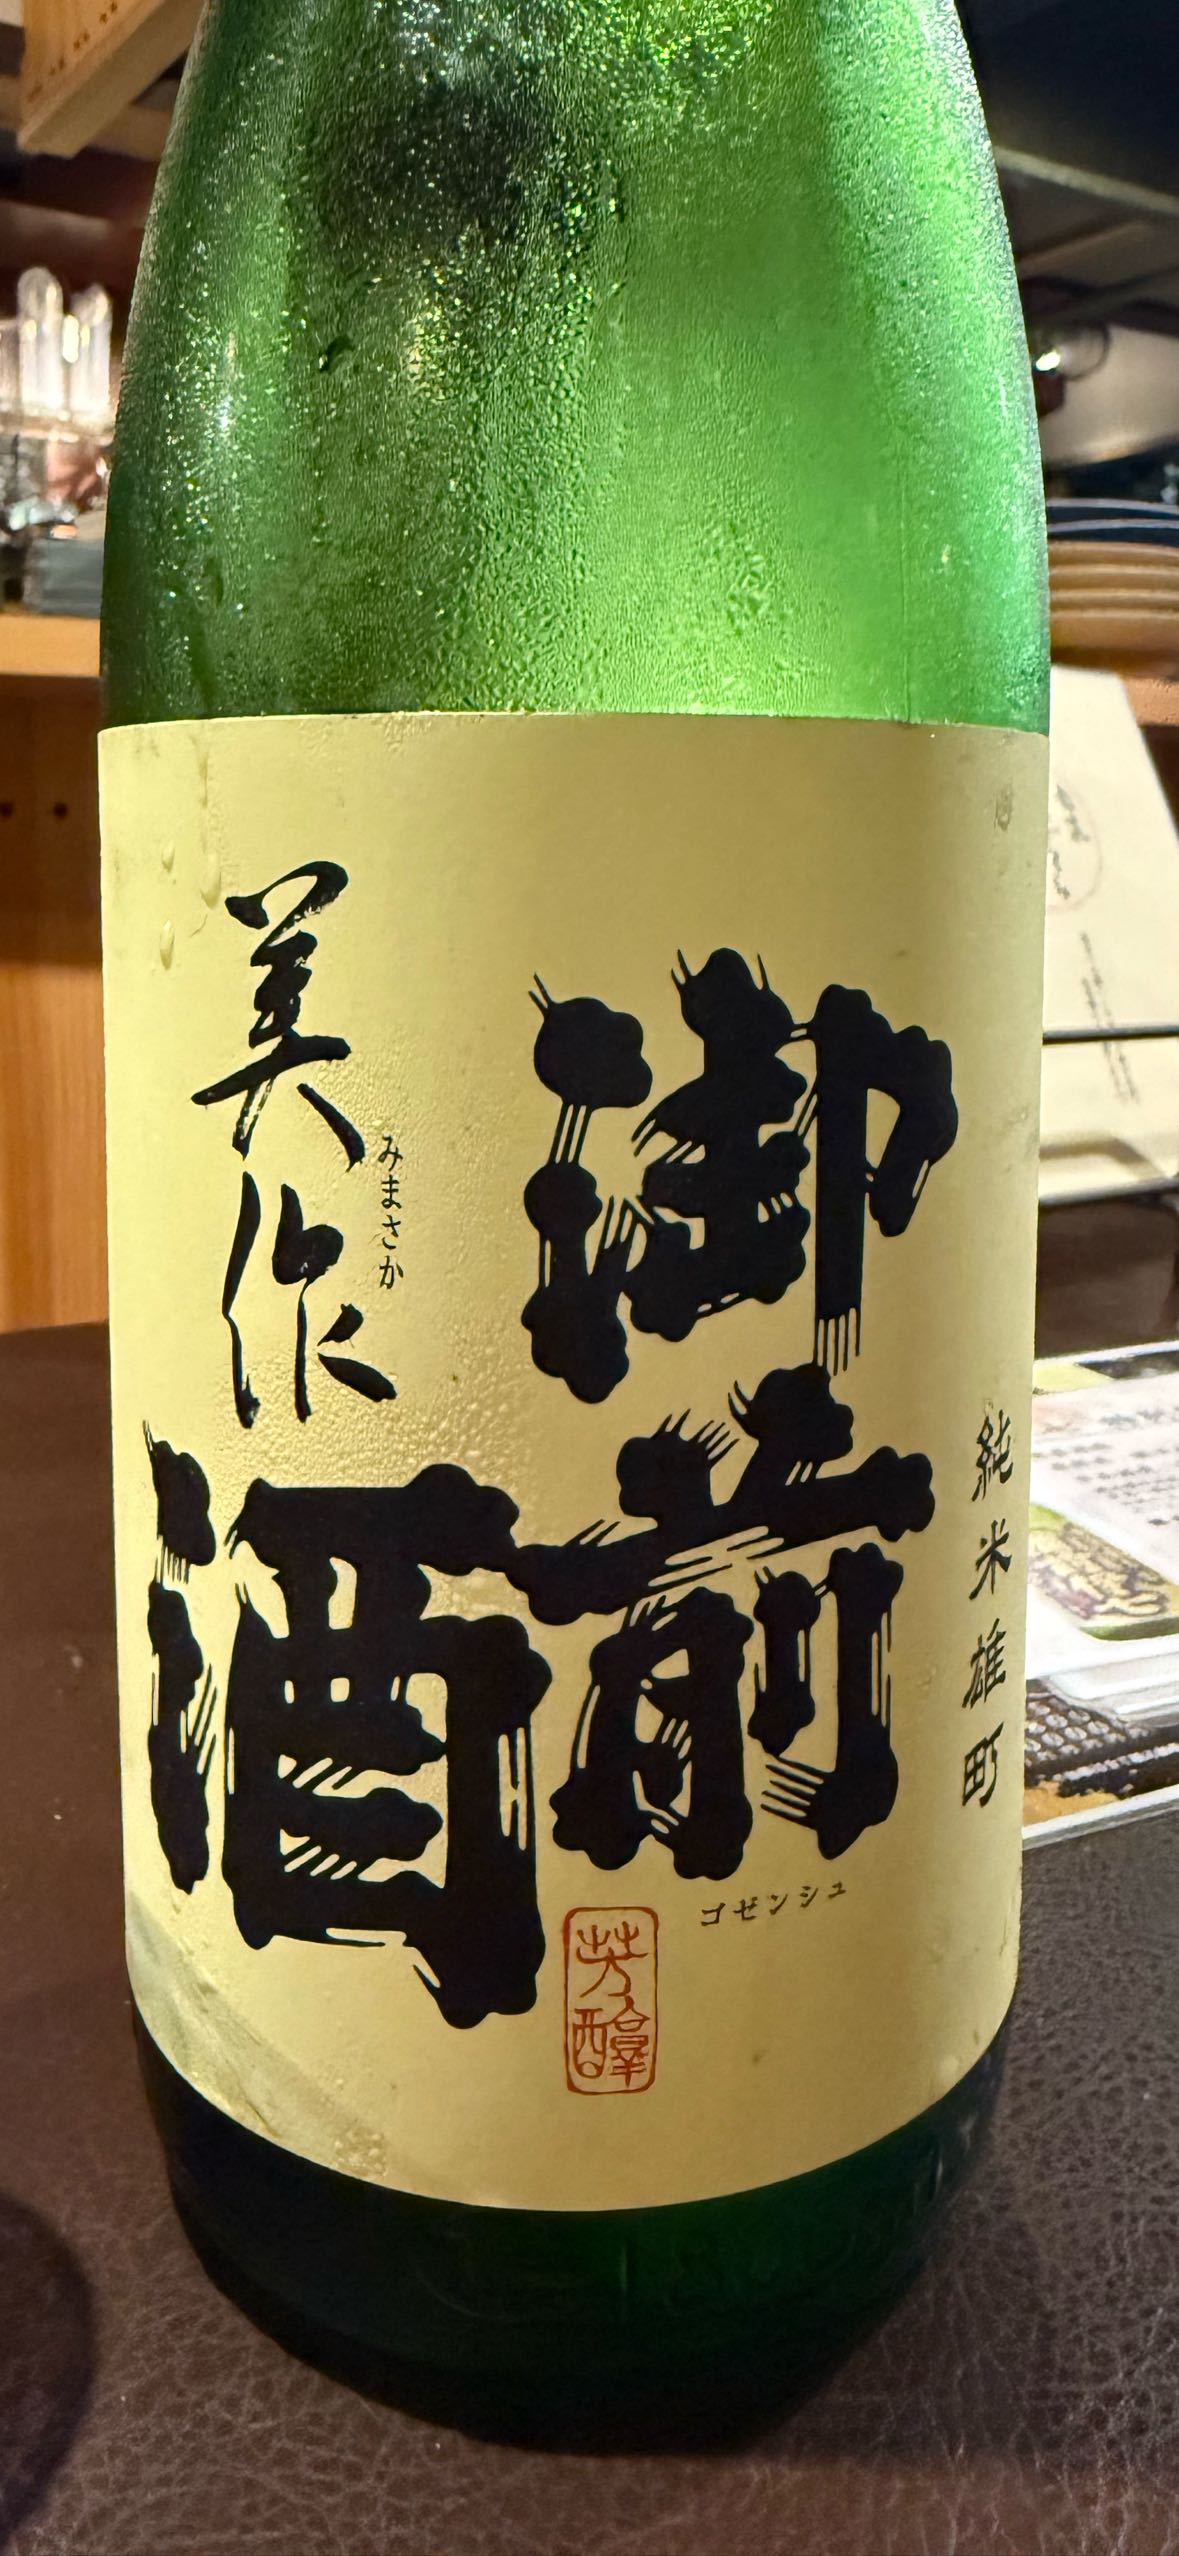 純米雄町
御前酒
ゴゼンシュ
美作
みまさか
芳醇